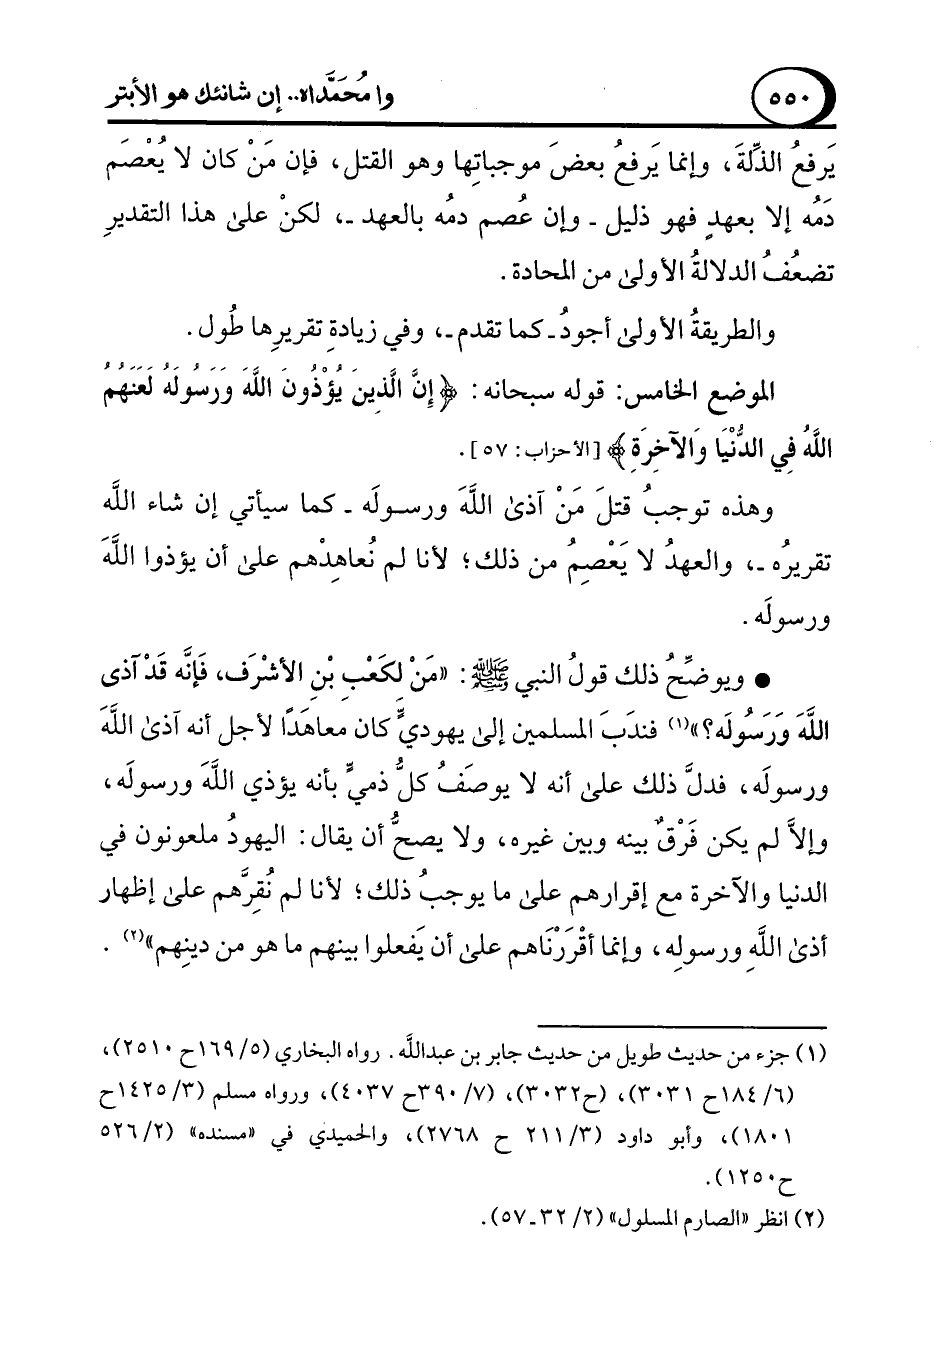 ٥٥٠
وا مُحَمَّداه.. إن شانئك هو الأبتر
يَرفعُ الذِّلةَ، وإنما يَرفعُ بعضَ موجباتِها وهو القتل، فإن مَنْ كان لا يُعْصَم
دَمُه إلا بعهدٍ فهو ذليل ـ وإن عُصم دمُه بالعهد ـ، لكنْ علىٰ هذا التقديرِ
تضعُفُ الدلالةُ الأولىٰ من المحادة.
والطريقةُ الأولىٰ أجودُ ـ كما تقدم ـ، وفي زيادةِ تقريرِها طُول.
الموضع الخامس: قوله سبحانه: ﴿إِنَّ الَّذِينَ يُؤْذُونَ اللَّهَ وَرَسُولَهُ لَعَنَهُمُ
اللَّهُ فِي الدُّنْيَا وَالآخِرَةِ﴾ [الأحزاب: ٥٧].
وهذه توجبُ قتلَ مَنْ آذىٰ اللَّهَ ورسولَه ـ كما سيأتي إن شاء اللَّه
تقريرُه ـ، والعهدُ لا يَعْصِمُ من ذلك؛ لأنا لم نُعاهِدْهم علىٰ أن يؤذوا اللَّهَ
ورسولَه.
● ويوضِّحُ ذلك قولُ النبي ﷺ: «مَنْ لِكَعْبِ بْنِ الأشْرَف، فَإنَّه قَدْ آذى
اللَّهَ وَرَسُولَه؟»(١) فندَبَ المسلمين إلىٰ يهوديٍّ كان معاهَدًا لأجل أنه آذىٰ اللَّهَ
ورسولَه، فدلَّ ذلك علىٰ أنه لا يوصَفُ كلُّ ذميٍّ بأنه يؤذي اللَّهَ ورسولَه،
وإلاَّ لم يكن فَرْقٌ بينه وبين غيره، ولا يصحُّ أن يقال: اليهودُ ملعونون في
الدنيا والآخرة مع إقرارهم علىٰ ما يوجبُ ذلك؛ لأنا لم نُقِرَّهم علىٰ إظهار
أذىٰ اللَّهِ ورسولِه، وإنما أقْرَرْنَاهم علىٰ أن يَفعلوا بينهم ما هو من دينِهم»(٢).
(١) جزء من حديث طويل من حديث جابر بن عبداللَّه. رواه البخاري (٥/ ١٦٩ح ٢٥١٠)،
(٦/ ١٨٤ح ٣٠٣١)، (ح٣٠٣٢)، (٧/ ٣٩٠ح ٤٠٣٧)، ورواه مسلم (٣/ ١٤٢٥ح
١٨٠١)، وأبو داود (٣/ ٢١١ ح ٢٧٦٨)، والحميدي في «مسنده» (٢/ ٥٢٦
ح١٢٥٠).
(٢) انظر «الصارم المسلول» (٢/ ٣٢ـ٥٧).